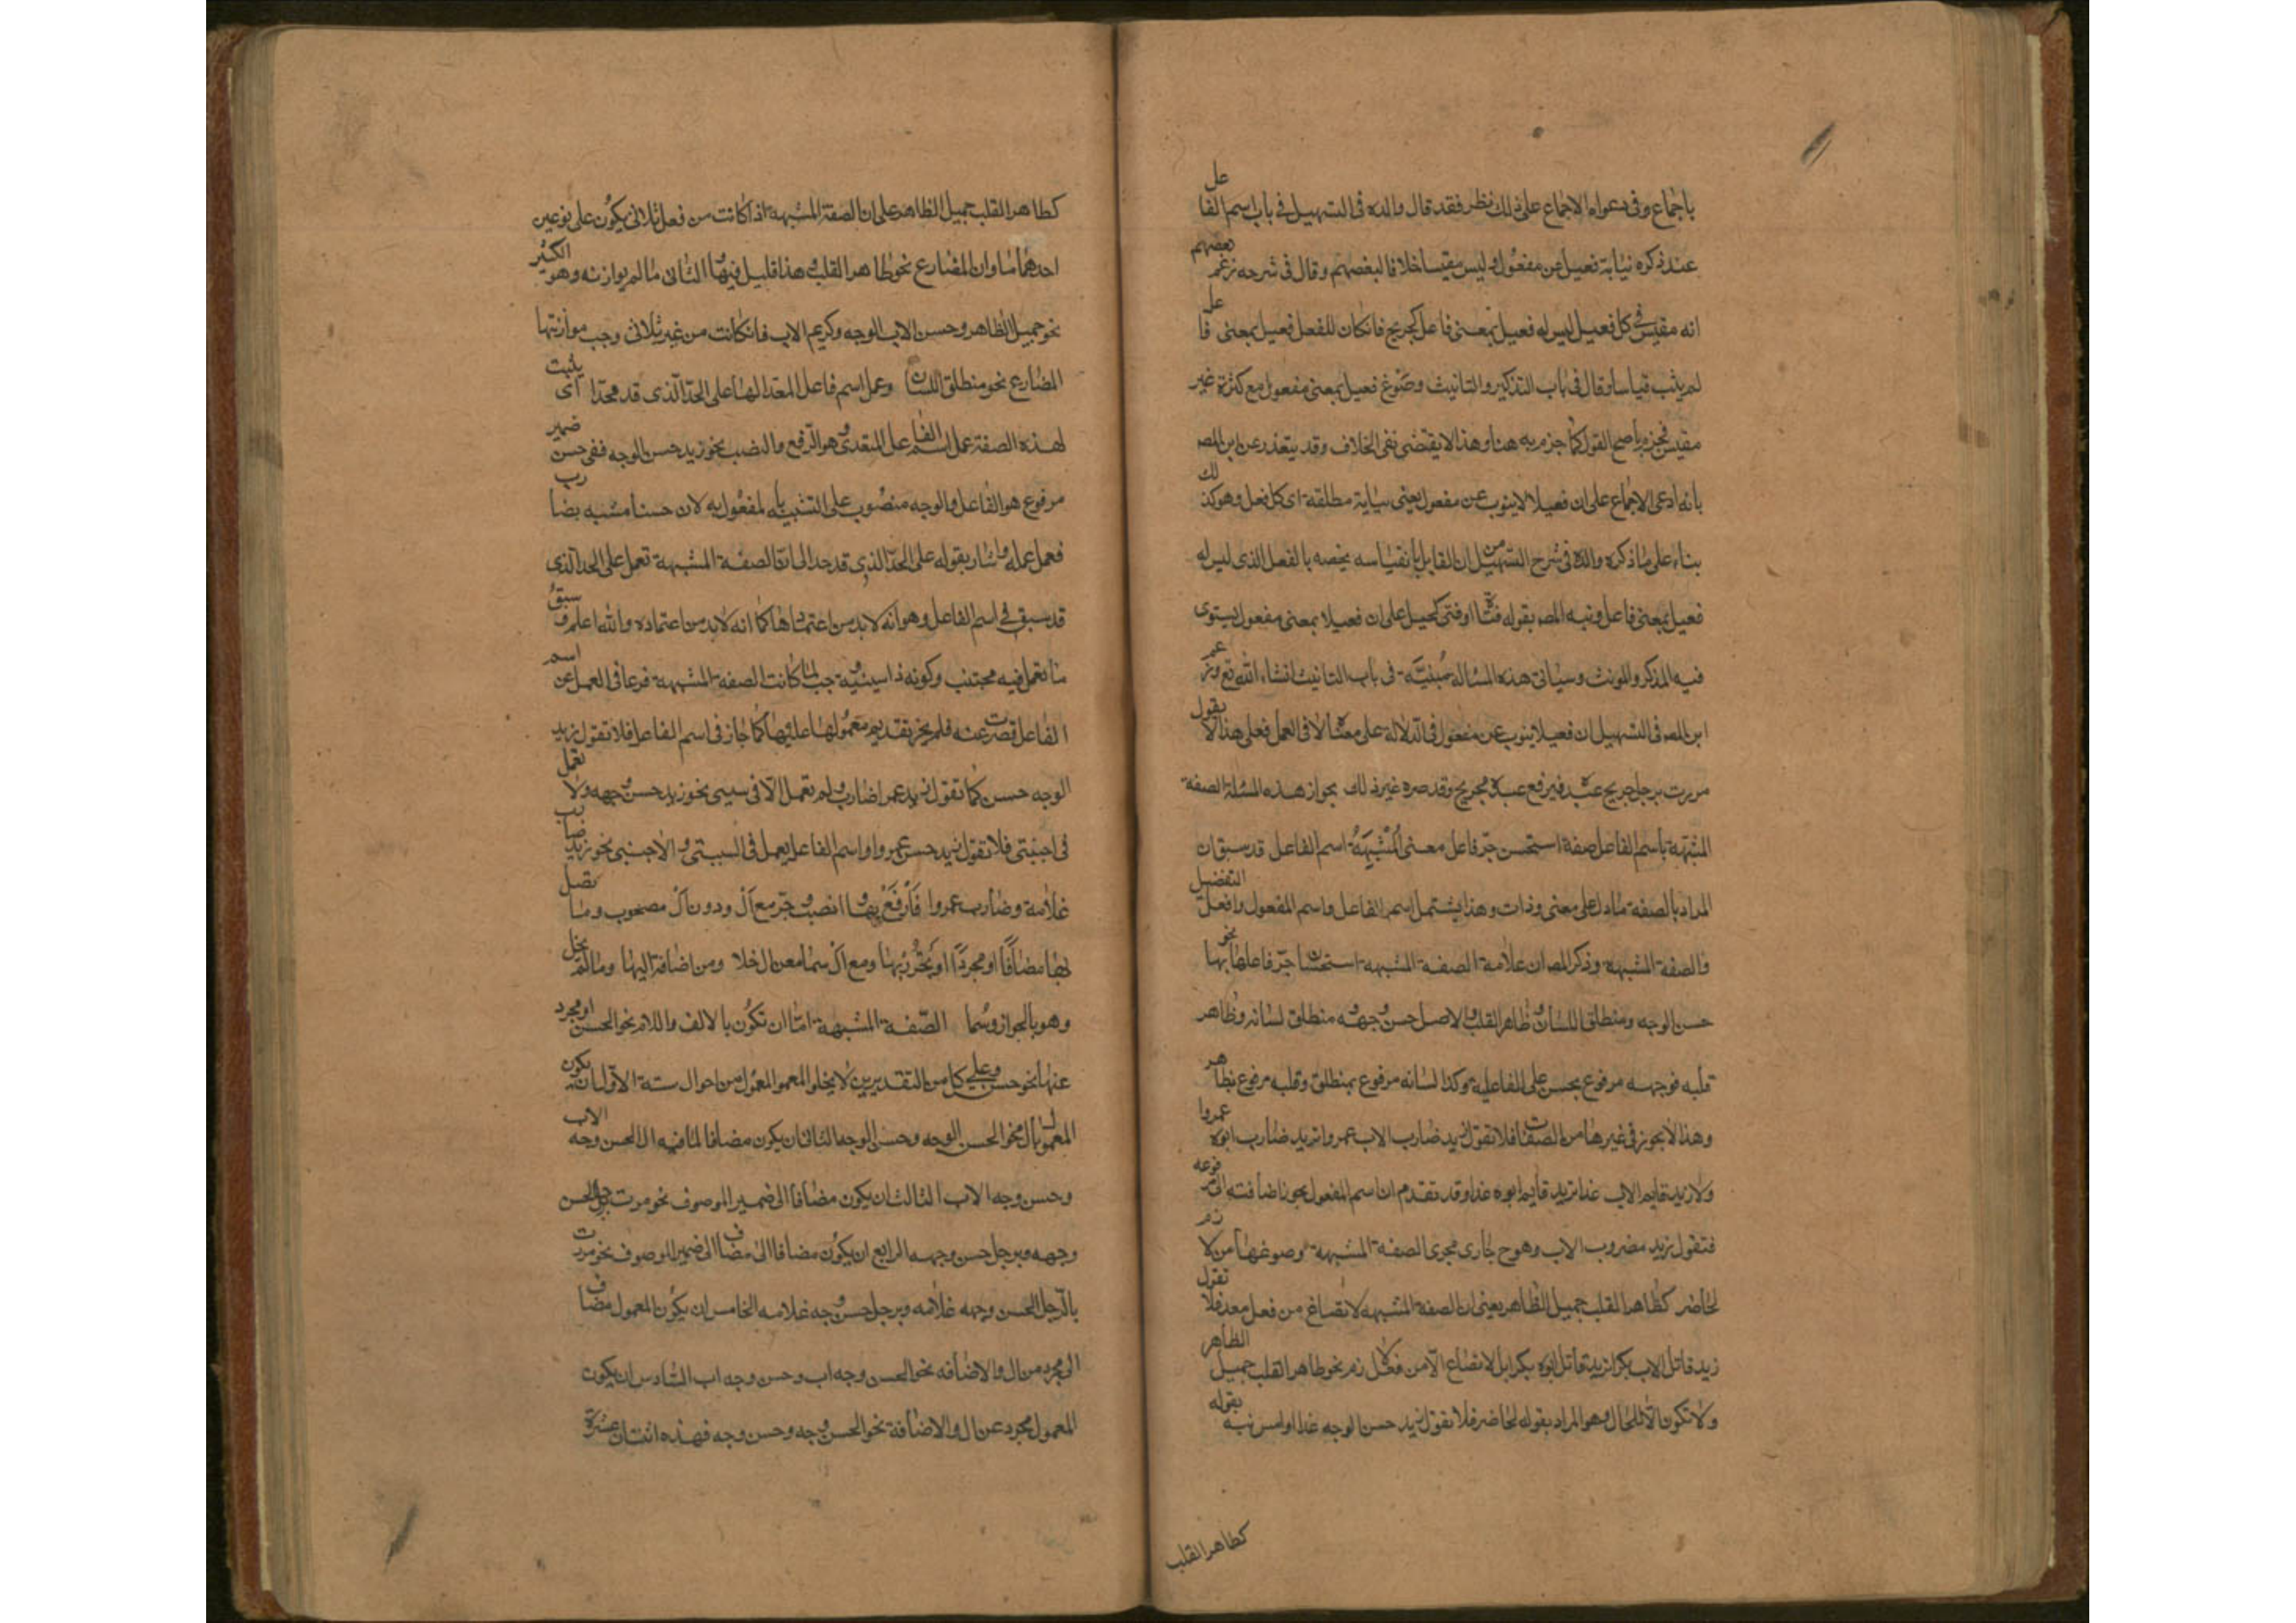 باجماع وفى دعواه الاجماع على ذلك نظر فقد قال والده فى التسهيل فى باب اسم الفاعل
عند ذكره نيابة فعيل عن مفعول وليس مقيسا خلافا لبعضهم وقال فى شرحه زعم بعضهم
انه مقيس فى كل فعيل ليس له فعيل بمعنى فاعل كجريح فان كان للفعل فعيل بمعنى فاعل
لم ينب قياسا وقال فى باب التذكير والتانيث وصوغ فعيل بمعنى مفعول مع كثرة غير
مقيس فجزم باصح القول كما جزم به هنا وهذا لا يقتضى نفى الخلاف وقد يعتذر عن ابن المص
بانه ادعى الاجماع على ان فعيلا لا ينوب عن مفعول يعنى نيابة مطلقة اى كل فعل وهو كذلك
بناء على ما ذكره والده فى شرح التسهيل من ان القايل بانقياسه يخصه بالفعل الذى ليس له
فعيل بمعنى فاعل ونبه المص بقوله فتاة او فتى كحيل على ان فعيلا بمعنى مفعول يستوى
فيه المذكر والمونث وسياتى هذه المسالة مبينة فى باب التانيث انشاء الله تع وزعم
ابن المص فى التسهيل ان فعيلا ينوب عن مفعول فى الدلالة على معناه لا فى العمل فعلى هذا لا يقول
مررت برجل جريح عبده فيرفع عبده بجريح وقد صرح غيره ذلك بجواز هذه المسئلة الصفة
المشبهة باسم الفاعل صفة استحسن جر فاعل معنى المشبهة اسم الفاعل قد سبق ان
المراد بالصفة ما دل على معنى وذات وهذا يشتمل اسم الفاعل واسم المفعول وافعل التفضيل
والصفة المشبهة وذكر المص ان علامة الصفة المشبهة استحسان جر فاعلها بها نحو
حسن الوجه ومنطلق اللسان وظاهر القلب والاصل حسن وجهه ومنطلق لسانه وظاهر
قلبه فوجهه مرفوع بحسن على الفاعلية وكذا لسانه مرفوع بمنطلق وقلبه مرفوع بظاهر
وهذا لا يجوز فى غيرها من الصفات فلا تقول زيد ضارب الاب عمروا تريد ضارب ابوه عمروا
ولا زيد قايم الاب غدا تريد قايم ابوه غدا وقد تقدم ان اسم المفعول يجوز اضافته الى مرفوعه
فتقول زيد مضروب الاب وهو ح جارى مجرى الصفة المشبهة وصوغها من لازم
لحاضر كطاهر القلب جميل الظاهر يعنى ان الصفة المشبهة لا تصاغ من فعل معد فلا تقول
زيد قاتل الاب بكرا تريد قاتل ابوه بكرا بل لا تصاغ الا من فعل لازم نحو طاهر القلب جميل الظاهر
ولا تكون الا للحال وهو المراد بقوله لحاضر فلا تقول زيد حسن الوجه غدا او امس نبه بقوله
كطاهر القلب
كطاهر القلب جميل الظاهر على ان الصفة المشبهة اذا كانت من فعل ثلاثى يكون على نوعين
احدهما ما وازن المضارع نحو طاهر القلب وهذا قليل فيها والثانى ما لم يوازنه وهو الكثير
نحو جميل الظاهر وحسن الوجه وكريم الاب فان كانت من غير ثلاثى وجب موازنتها
المضارع نحو منطلق اللسان وعمل اسم فاعل المعدى لها على الحد الذى قد حدا اى يثبت
لهذه الصفة عمل اسم الفاعل المتعدى وهو الرفع والنصب نحو زيد حسن الوجه ففى حسن ضمير
مرفوع هو الفاعل والوجه منصوب على التشبيه بالمفعول به لان حسنا مشبه بضارب
فعمل عمله واشار بقوله على الحد الذى قد حدا الى ان الصفة المشبهة تعمل على الحد الذى
قد سبق فى اسم الفاعل وهو انه لا بد من اعتمادها كما انه لا بد من اعتماده والله اعلم وسبق
ما تعمل فيه مجتنب وكونه ذا سببية وجب لما كانت الصفة المشبهة فرعا فى العمل عن اسم
الفاعل قصرت عنه فلم يجز تقديم معمولها عليها كما جاز فى اسم الفاعل فلا تقول زيد
الوجه حسن كما تقول زيد عمرا ضارب ولم تعمل الا فى سببى نحو زيد حسن وجهه ولا تعمل
فى اجنبى فلا تقول زيد حسن عمروا واسم الفاعل يعمل فى السببى والاجنبى نحو زيد ضارب
غلامه وضارب عمروا فارفع بها وانصب وجر مع ال ودون ال مصحوب وما يتصل
بها مضافا او مجردا او تجرر بها ومع ال سما من ال خلا ومن اضافة اليها وما لم يخل
وهو بالجواز وسما الصفة المشبهة اما ان تكون بالالف واللام نحو الحسن او مجرد
عنها نحو حسن وعلى كل من التقديرين لا يخلو المعمول من احوال ستة الاول ان يكون
المعمول بال نحو الحسن الوجه وحسن الوجه الثانى ان يكون مضافا لما فيه ال الحسن وجه الاب
وحسن وجه الاب الثالث ان يكون مضافا الى ضمير الموصوف نحو مررت برجل الحسن
وجهه وبرجل حسن وجهه الرابع ان يكون مضافا الى مضاف الى ضمير الموصوف نحو مررت
بالرجل الحسن وجهه غلامه وبرجل حسن وجه غلامه الخامس ان يكون المعمول مضاف
الى مجرد من ال والاضافه نحو الحسن وجه اب وحسن وجه اب السادس ان يكون
المعمول مجرد عن ال والاضافة نحو الحسن وجه وحسن وجه فهذه اثنتان عشرة